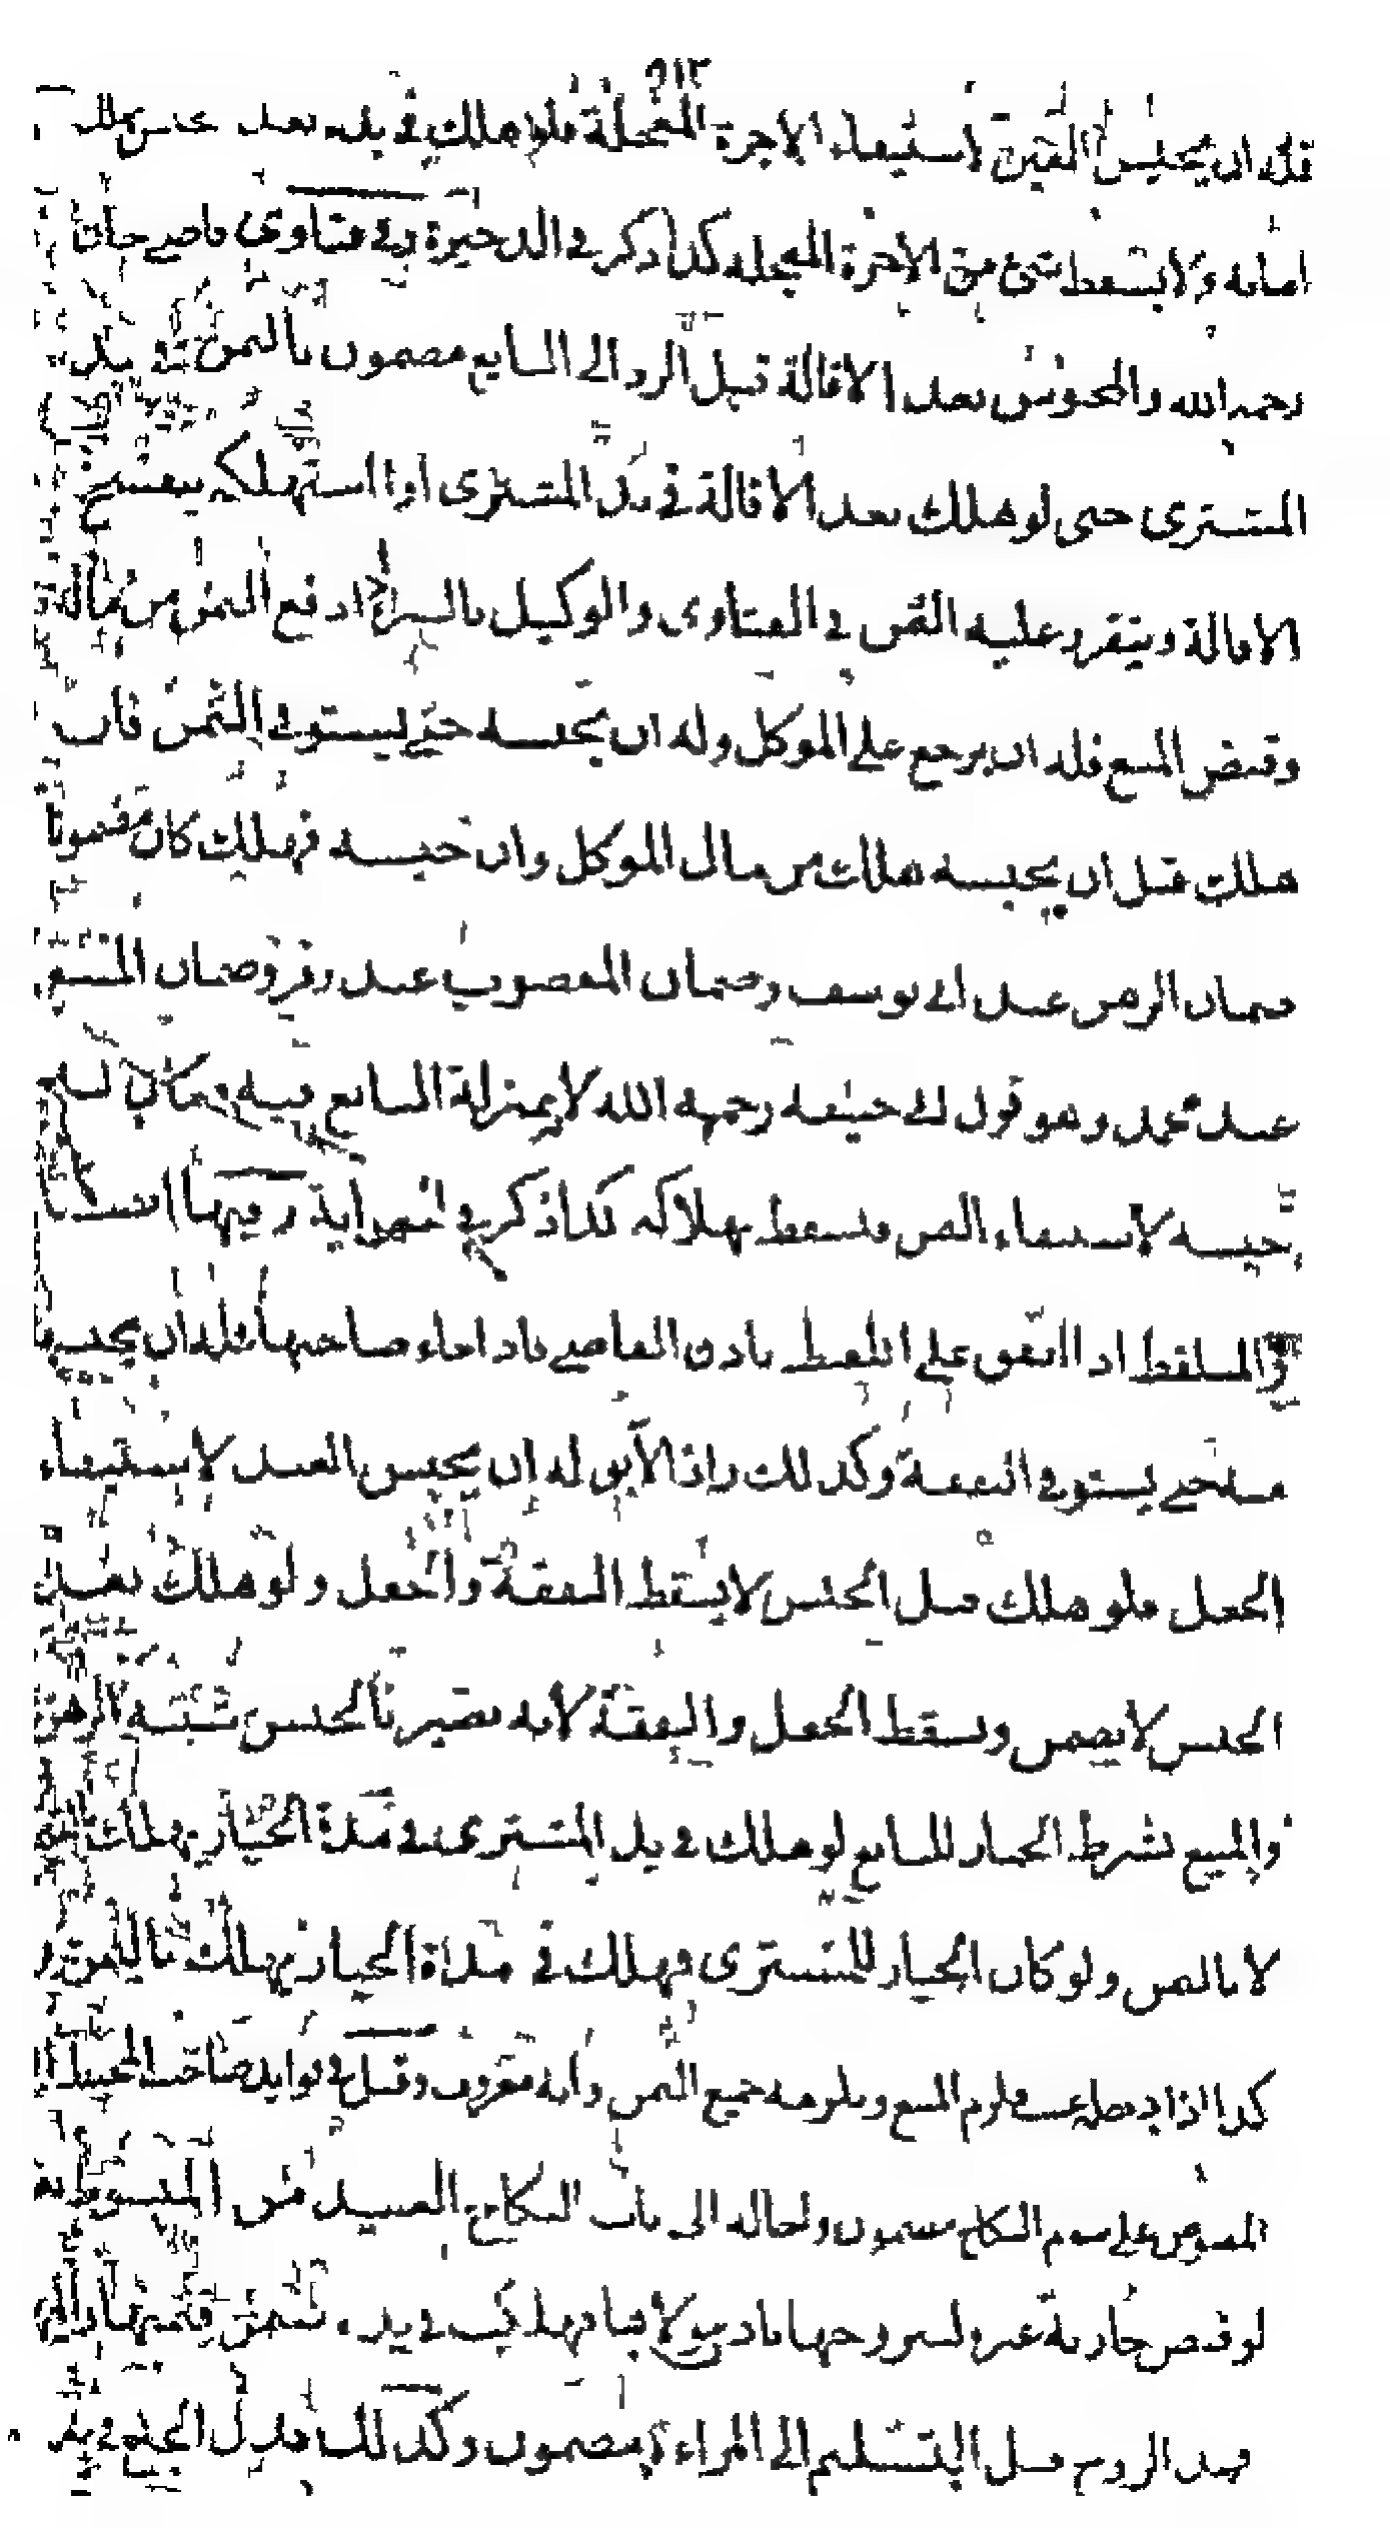 ٩١٣
فله ان يحبس العين لاستيفاء الاجرة المعجلة فلو هلك في يده بعد حبس هلك
امانة ولا يسقط شئ من الاجرة المعجله كذا ذكر في الذخيرة وفي فتاوى قاضي خان
رحمه الله والمحبوس بعد الاقالة قبل الرد الى البايع مضمون بالثمن في يد
المشترى حتى لو هلك بعد الاقالة في يد المشترى او استهلكه يفسخ
الاقالة ويتقرر عليه الثمن في الفتاوى والوكيل بالشراء اذا دفع الثمن من ماله
وقبض المبيع فله ان يرجع على الموكل وله ان يحبسه حتى يستوفى الثمن فان
هلك قبل ان يحبسه هلك من مال الموكل وان حبسه فهلك كان مضمونا
ضمان الرهن عند ابي يوسف وضمان المغصوب عند زفر وضمان المبيع
عند محمد وهو قول ابي حنيفه رحمه الله لانه بمنزلة البايع فيه فكان
حبسه لاستيفاء الثمن فيسقط بهلاكه كذا ذكر في الهداية وفيها ايضا
والملتقط اذا انفق على اللقطه باذن القاضي فاذا جاء صاحبها فله ان يحبسها
منه حتى يستوفى النفقة وكذلك راد الآبق له ان يحبس العبد لاستيفاء
الجعل فلو هلك قبل الحبس لا يسقط النفقة والجعل ولو هلك بعد
الحبس لا يضمن ويسقط الجعل والنفقة لانه يصير بالحبس شبه الرهن
والمبيع بشرط الخيار للبايع لو هلك في يد المشترى في مدة الخيار يهلك
لا بالثمن ولو كان الخيار للمشترى فهلك في مدة الخيار يهلك بالثمن و
كذا اذا دخله عيب فلزم المبيع ويلزمه جميع الثمن وانه معروف وقيل في فوايد صاحب المحيط
المقبوض على سوم النكاح مضمون واحاله الى باب النكاح العبيد من المبسوط
لو قبض جارية غيره ليتزوجها باذن مولاها فهلكت في يده ضمن قيمتها
فى يد الزوج قبل التسليم الى المراءة مضمون وكذلك بدل الخلع في يد